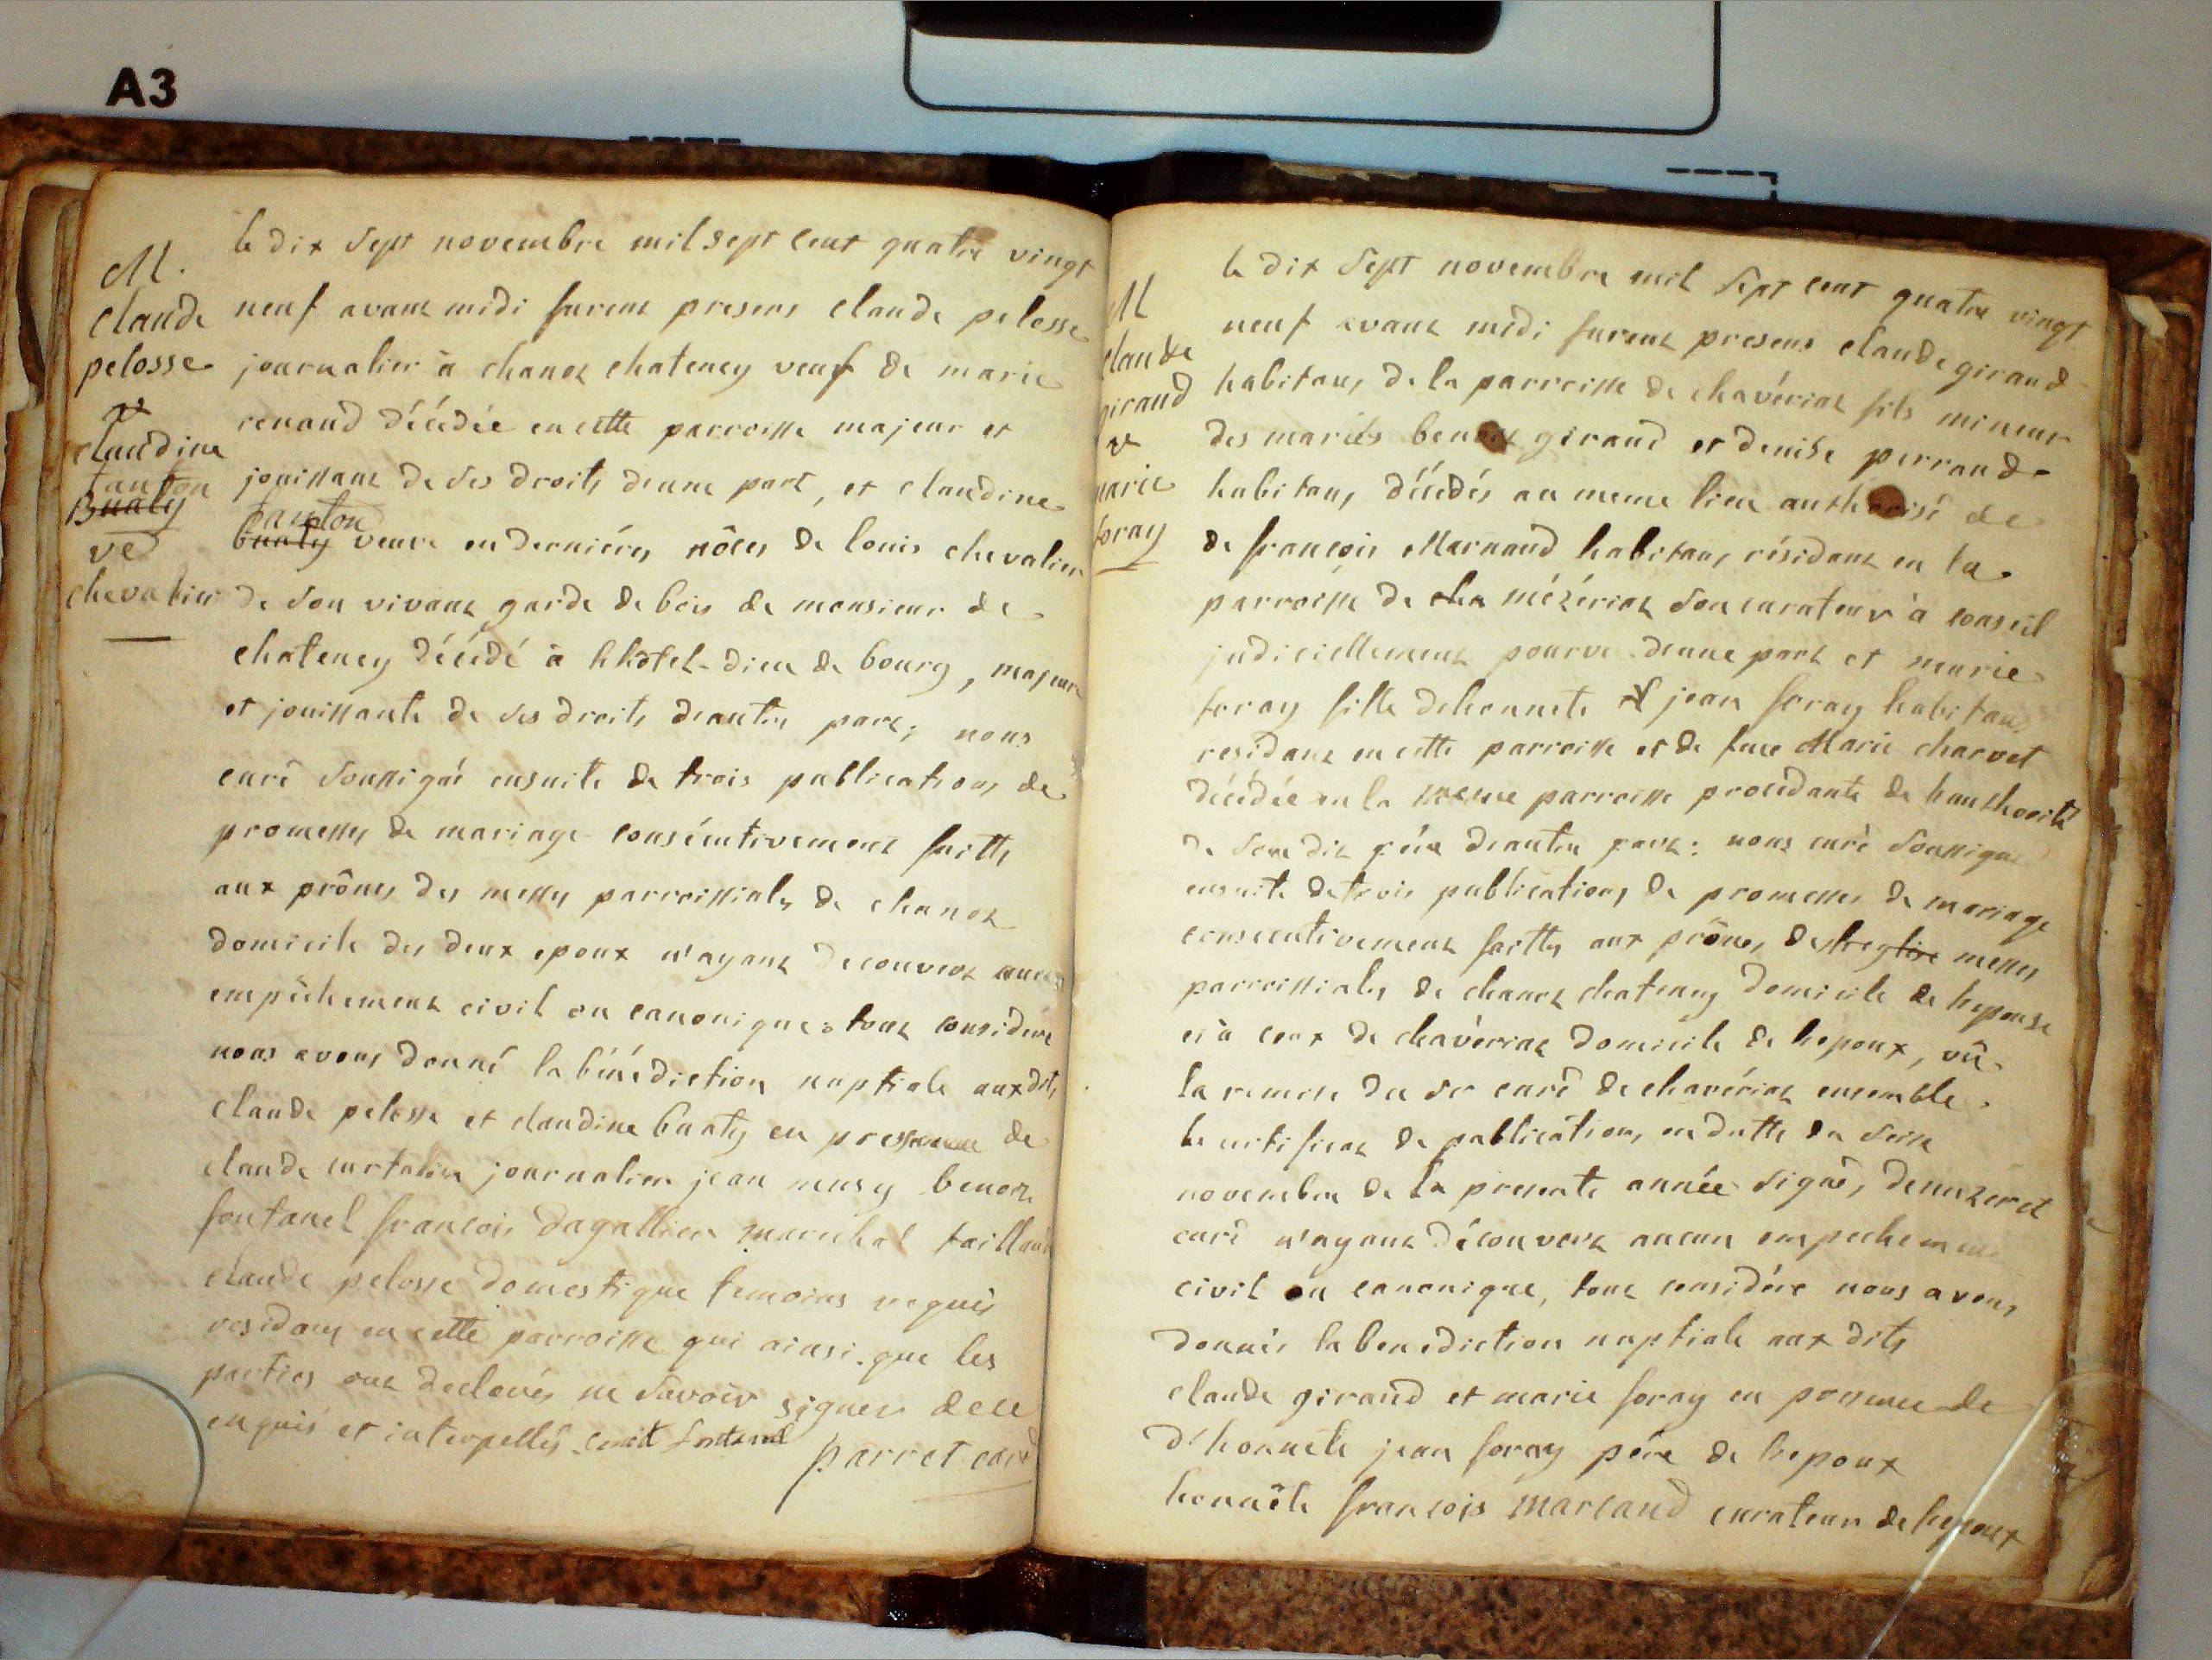 A3
M.
claude
pelosse
&
claudine
tanton
Bualy
ve
chevalier
le dix sept novembre mil sept cent quatre vingt
neuf avant midi furent presens claude pelosse
journalier à chanoz chateney veuf de marie
renaud décédée en cette parroisse majeur et
jouissant de ses droits d'une part, et claudine
tanton
bualy veuve en derniéres nôces de louis chevalier
de son vivant garde de bois de monsieur de
chateney décédé à l'hôtel-dieu de bourg, majeure
et jouissante de ses droits d'autre part; nous
curé soussigné ensuite de trois publications de
promesses de mariage consécutivement faittes
aux prônes des messes parroissiales de chanoz
domicile des deux epoux n'ayant decouvert aucun
empêchement civil ou canonique tout consideré
nous avons donné la bénédiction nuptiale auxdits
claude pelosse et claudine bualy en presence de
claude curtalin journalier jean musy benoit
fontanel francois dagallier marechal taillandier
claude pelosse domestique temoins requis
residans en cette parroisse qui ainsi que les
parties ont declarés ne savoir signer de ce
enquis et interpellés benoit fontanel
parret curé
M
claude
giraud
&
marie
foray
le dix sept novembre mil sept cent quatre vingt
neuf avant midi furent presens claude giraud
habitant de la parroisse de chavériat fils mineur
des mariés benoit giraud et denise perraud
habitans décédés au meme lieu authorisé de
de françois Marnaud habitant résidant en la
parroisse de cha mézériat son curateur à conseil
judiciellement pourvu d'une part et marie
foray fille d'honnete jean foray habitant
residant en cette parroisse et de feue Marie charvet
décédée en la meme parroisse procedante de l'authorité
de son dit père d'autre part: nous curé soussigné
ensuite de trois publications de promesses de mariage
consecutivement faittes aux prônes de l'eglise messes
parroissiales de chanoz chateney domicile de l'epouse
et à ceux de chavériat domicile de l'epoux, vû
la remise du sr curé de chavériat ensemble
le certificat de publication, en datte du seize
novembre de la presente année signé,
curé n'ayant découvert aucun empechement
civil ou canonique, tout considéré nous avons
donnés la benediction nuptiale aux dits
claude giraud et marie foray en presence de
d'honnete jean foray pére de l'epoux
honnête francois marcaud curateur de l'epoux